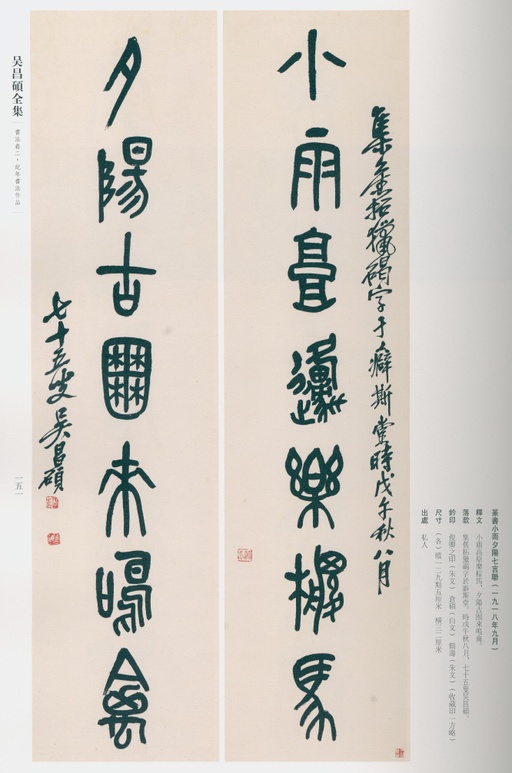 小雨高邍樂馬
集舊拓獵碣字于癖斯堂時戊午秋八月
夕陽古囿來鳴禽
七十五叟吳昌碩
吴昌碩全集
書法卷二·紀年書法作品
一五一
篆書小雨夕陽七言聯(一九一八年九月)
釋文 小雨高原樂馬,夕陽古囿來鳴禽。
落款 集舊拓獵碣字于癖斯堂,時戊午秋八月。七十五叟吴昌碩。
鈐印 俊卿之印(朱文) 倉碩(白文) (朱文)(收藏印一方略)
尺寸 (各)縱一二九點五厘米 橫三二厘米
出處 私人